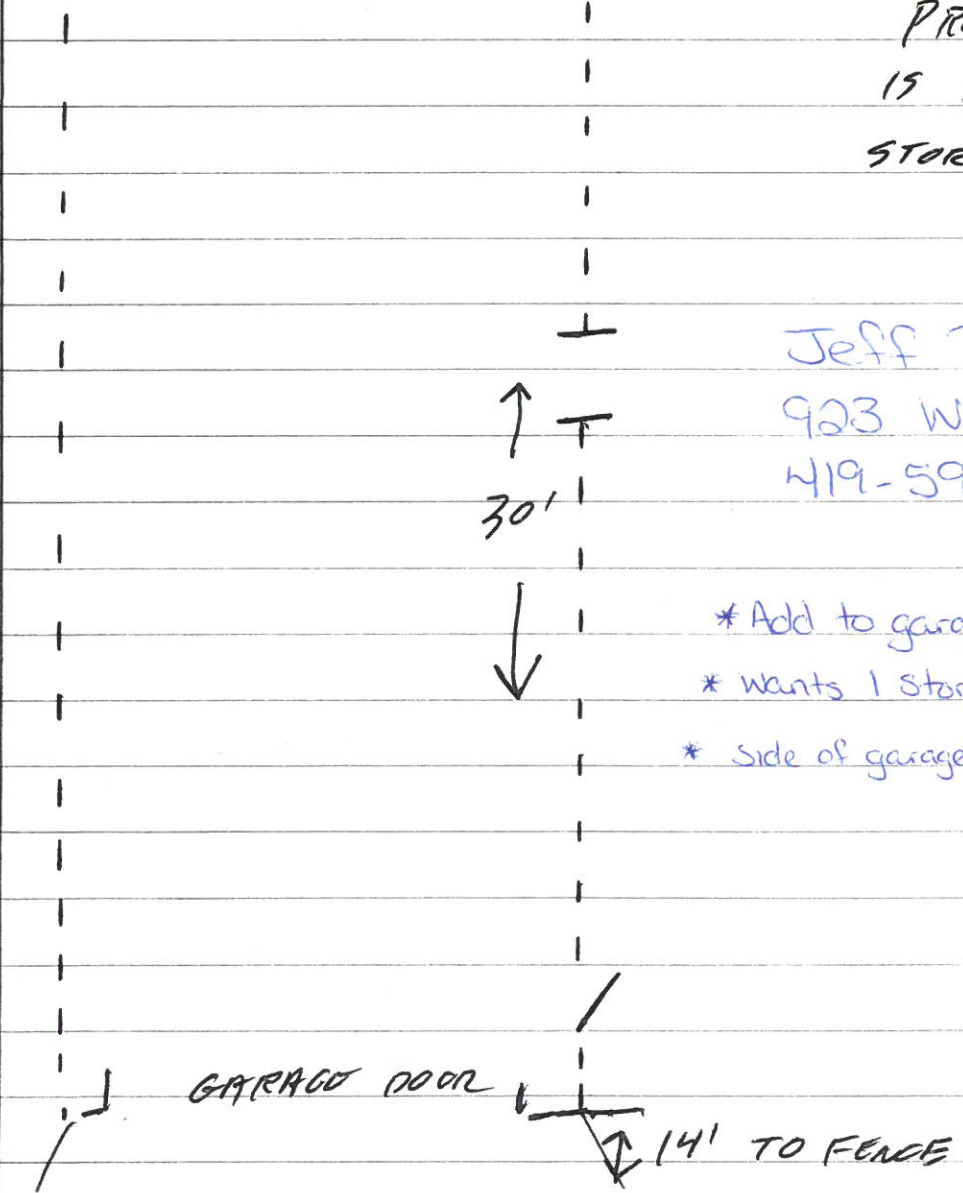 IS
Jeff
923 W
419-59
30'
* Add to gara
* Wants 1 Stor
* Side of garage
GARAGE DOOR
14' TO FENCE